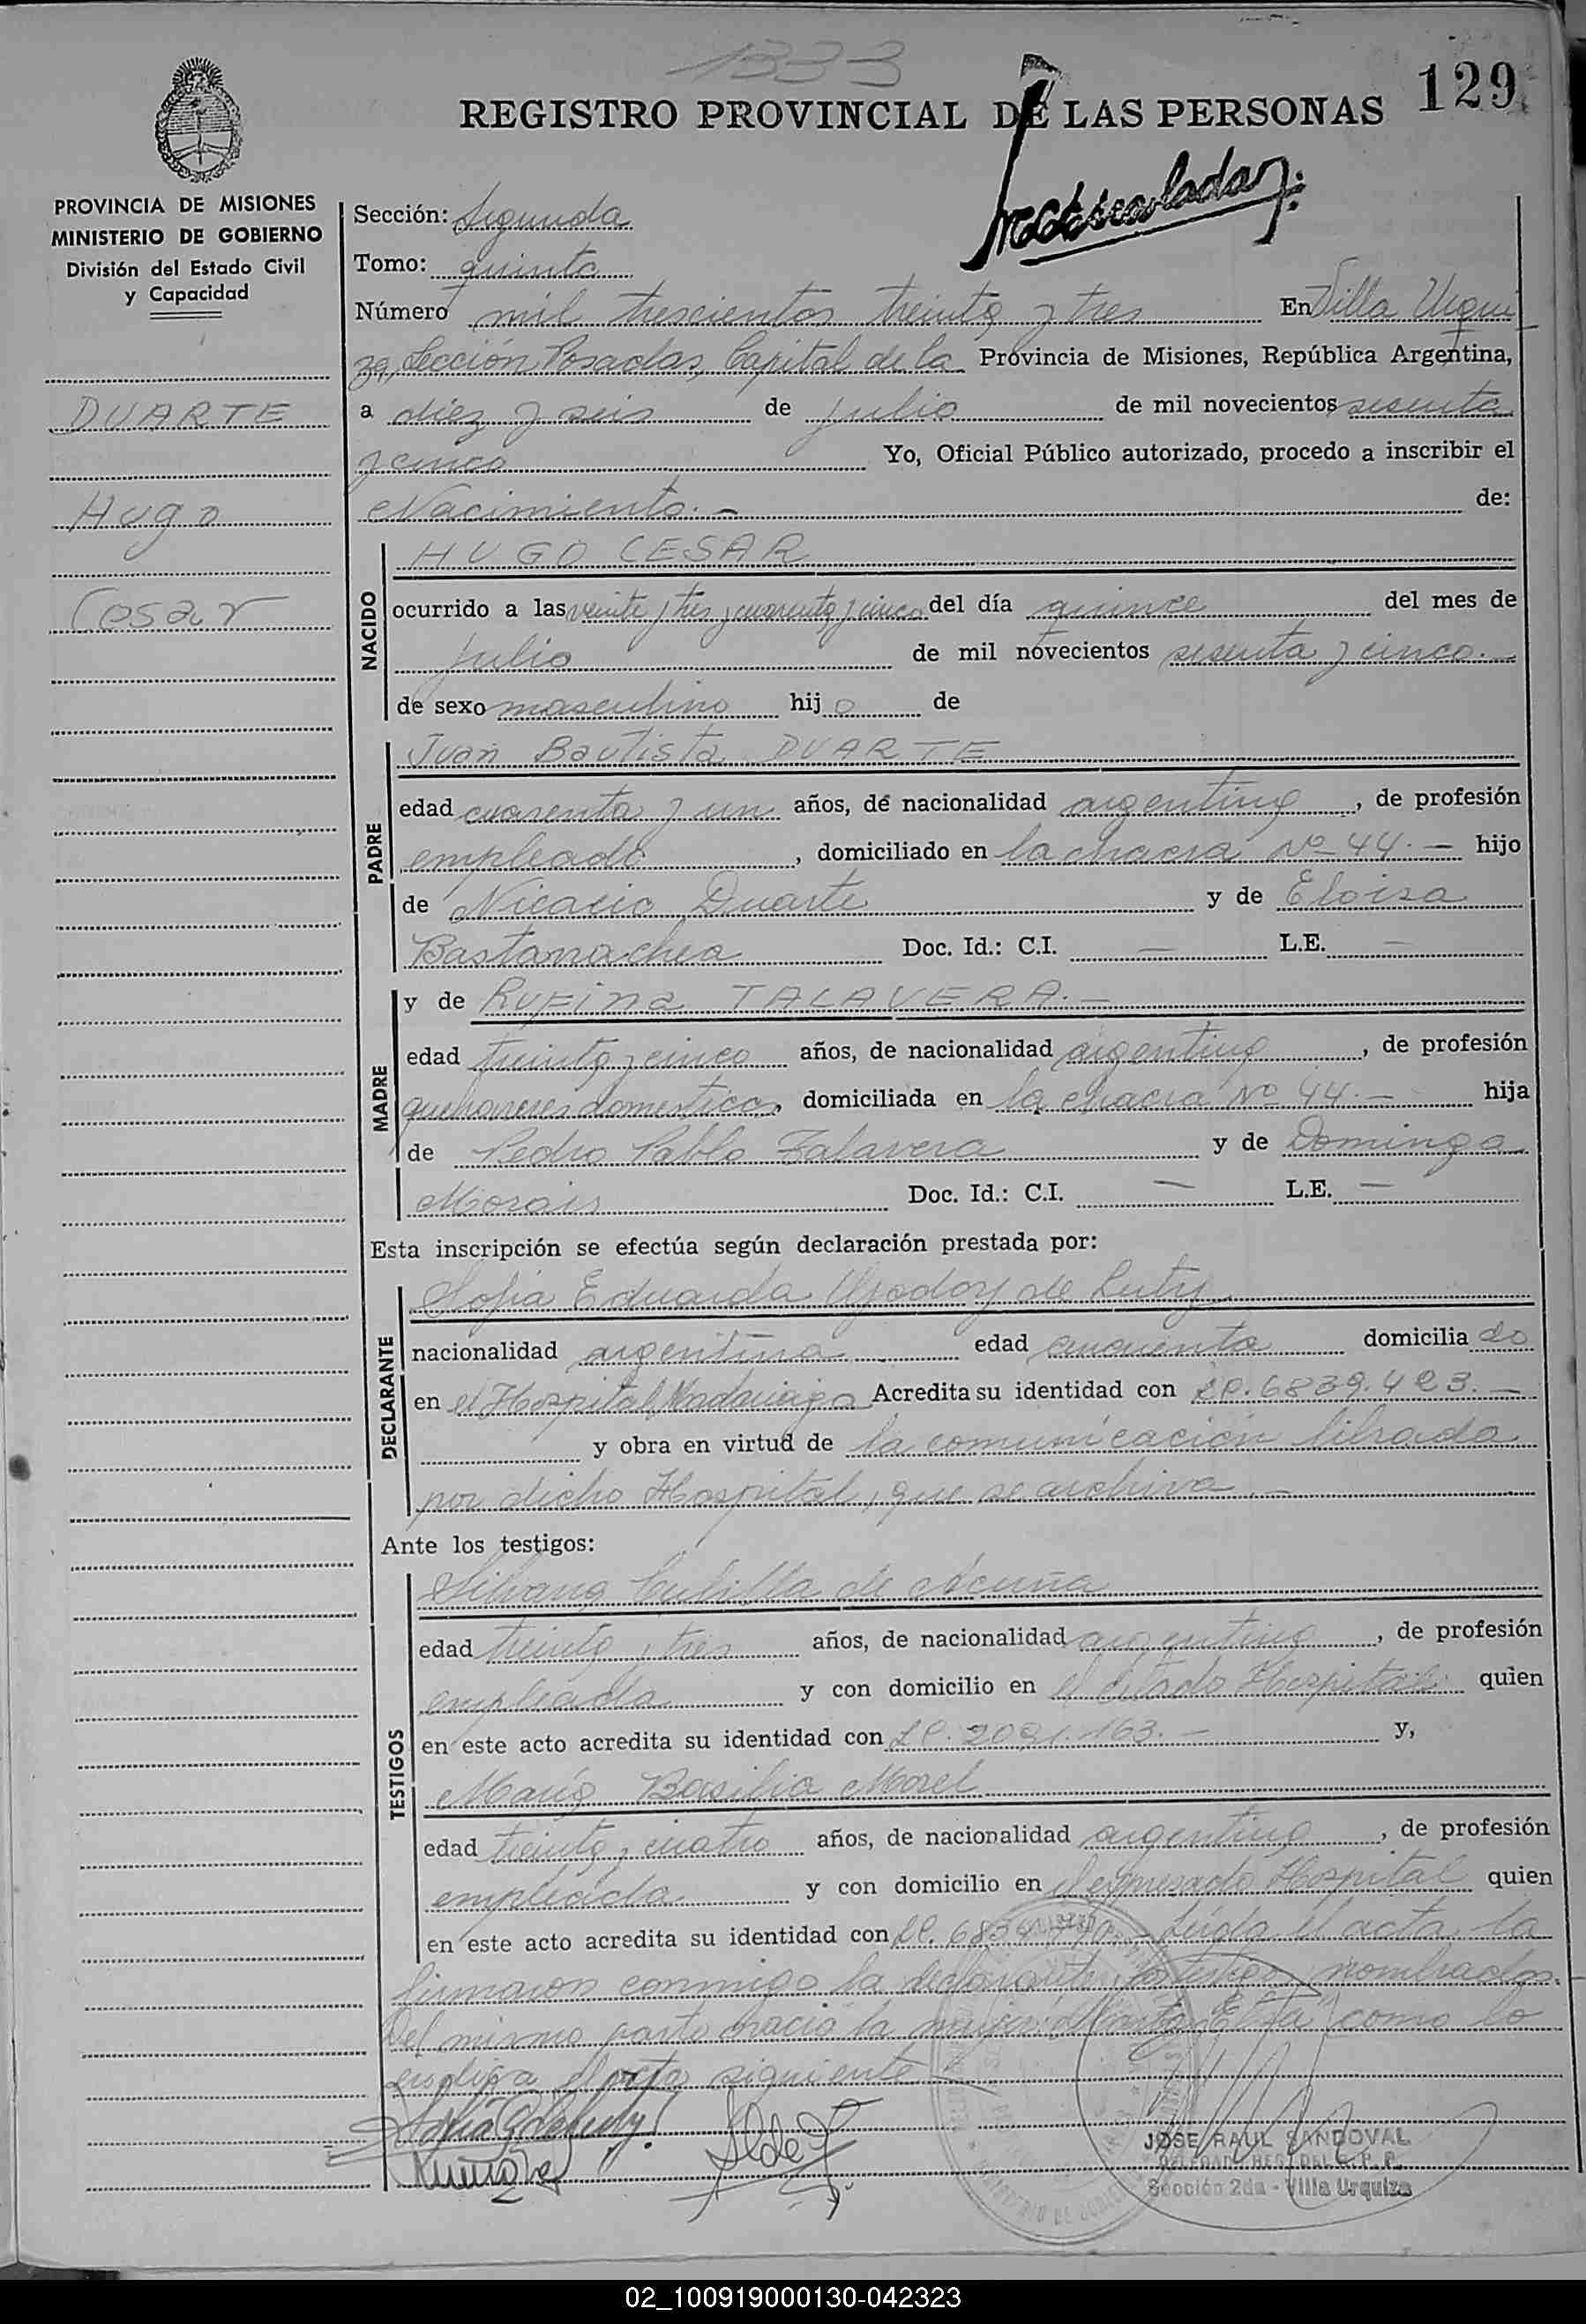 1333
129
REGISTRO PROVINCIAL DE LAS PERSONAS
PROVINCIA DE MISIONES
MINISTERIO DE GOBIERNO
División del Estado Civil
y Capacidad
DUARTE
Hugo
Cesar
Sección: Segunda
Tomo: quinto
Número mil trescientos treinta y tres En Villa Urqui
za, Sección Posadas, Capital de la Provincia de Misiones, República Argentina,
a diez y seis de julio de mil novecientos sesenta
y cinco Yo, Oficial Público autorizado, procedo a inscribir el
Nacimiento.- de:
NACIDO
HUGO CESAR
ocurrido a las veinte y tres y cuarenta y cinco del día quince del mes de
julio de mil novecientos sesenta y cinco.-
de sexo masculino hijo de
PADRE
Juan Bautista DUARTE
edad cuarenta y un años, de nacionalidad argentina, de profesión
empleado, domiciliado en la chacra Nº 44.- hijo
de Nicacio Duarte y de Eloisa
Bastarrachea Doc. Id.: C.I. — L.E. —
MADRE
y de Rufina TALAVERA.-
edad treinta y cinco años, de nacionalidad argentina, de profesión
quehaceres domesticos, domiciliada en la chacra Nº 44.- hija
de Pedro Pablo Talavera y de Dominga
Morais Doc. Id.: C.I. — L.E. —
Esta inscripción se efectúa según declaración prestada por:
DECLARANTE
Sofia Eduarda Godoy de Luty
nacionalidad argentina edad cincuenta domiciliado
en el Hospital Madariaga Acredita su identidad con LC. 6839.423.-
y obra en virtud de la comunicación librada
por dicho Hospital, que se archiva.-
Ante los testigos:
TESTIGOS
Silvana Cubilla de Acuña
edad treinta y tres años, de nacionalidad argentina, de profesión
empleada y con domicilio en el citado Hospital quien
en este acto acredita su identidad con LC. 2091.163.- y,
María Basilia Morel
edad treinta y cuatro años, de nacionalidad argentina, de profesión
empleada y con domicilio en el expresado Hospital quien
en este acto acredita su identidad con LC. Leída el acta, la
firmaron conmigo la declarante, testigos nombrados.
Del mismo parto nació la como lo
acta siguiente
JOSE RAUL SANDOVAL
Sección 2da - Villa Urquiza
02_100919000130-042323